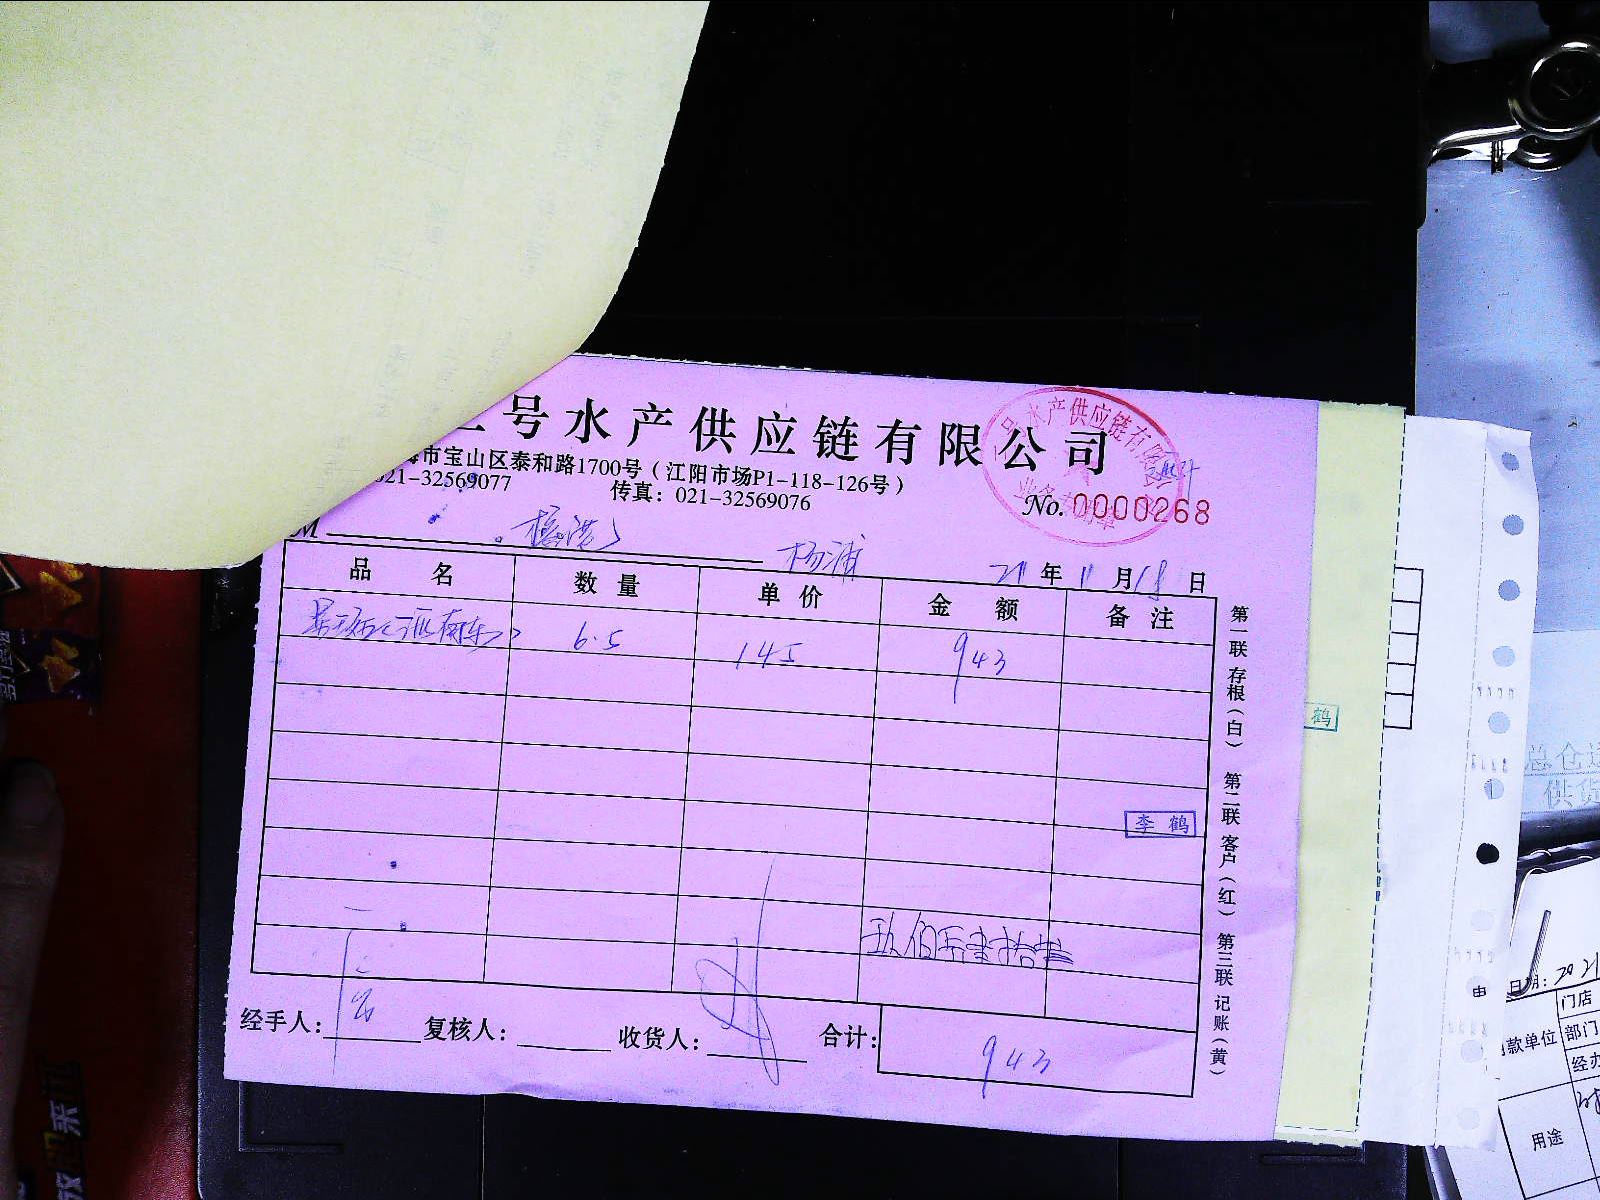 号水产供应链有限公司
市宝山区泰和路1700号（江阳市场P1-118-126号）
021-32569077 传真：021-32569076
No. 0000268
号水产供应链有限
M
杨浦 21年11月18日
品名 数量 单价 金额 备注
6.5 145 943
李鹤
玖佰
经手人： 复核人： 收货人： 合计： 943
第一联存根（白） 第二联客户（红） 第三联记账（黄）
鹤
总仓
供货
日期：2021
门店
部门
款单位
用途
由